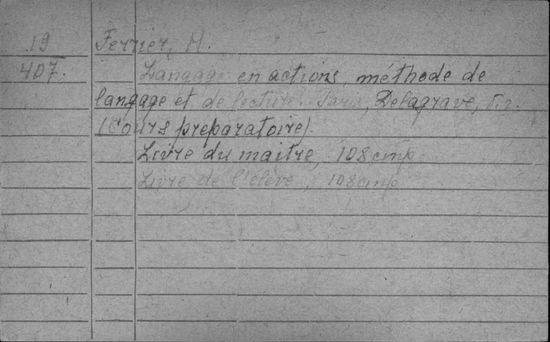 19 Ferrier, M.
407. Langage en actions, méthode de
langage et de lecture. Paris, Delagrave,
(Cours préparatoire).
Livre du maitre, 108 cmp
Livre de l'élève, 108 cmp